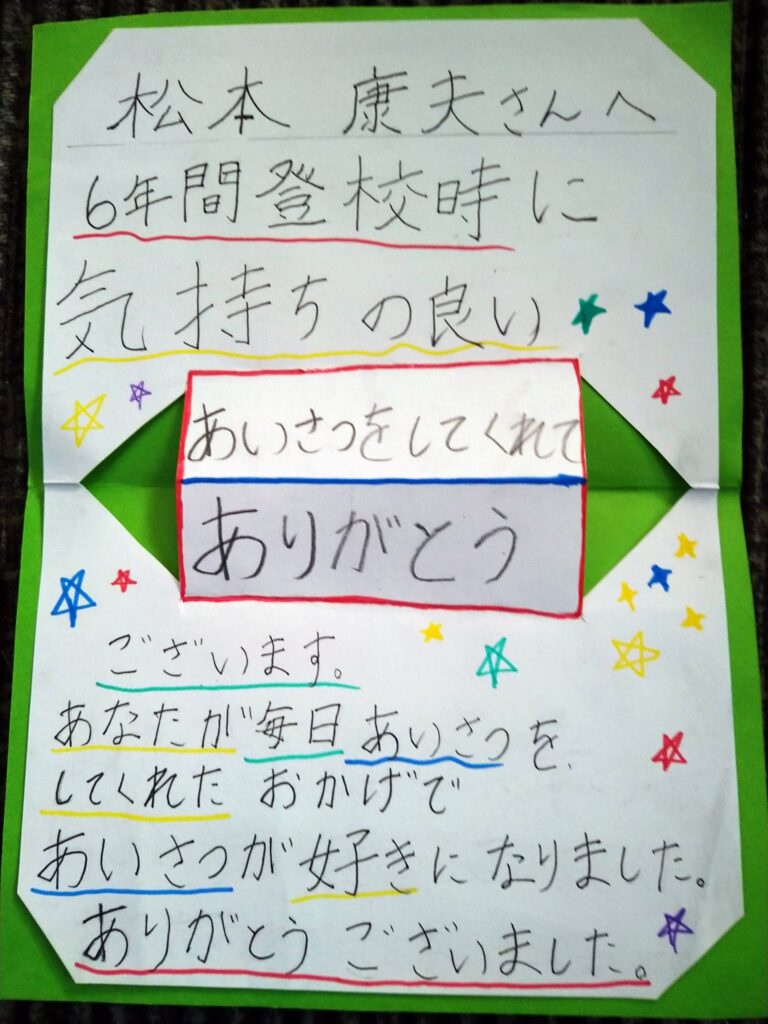 松本 康夫さんへ
6年間登校時に
気持ちの良い
あいさつをしてくれて
ありがとう
ございます。
あなたが毎日あいさつを
してくれたおかげで
あいさつが好きになりました。
ありがとうございました。